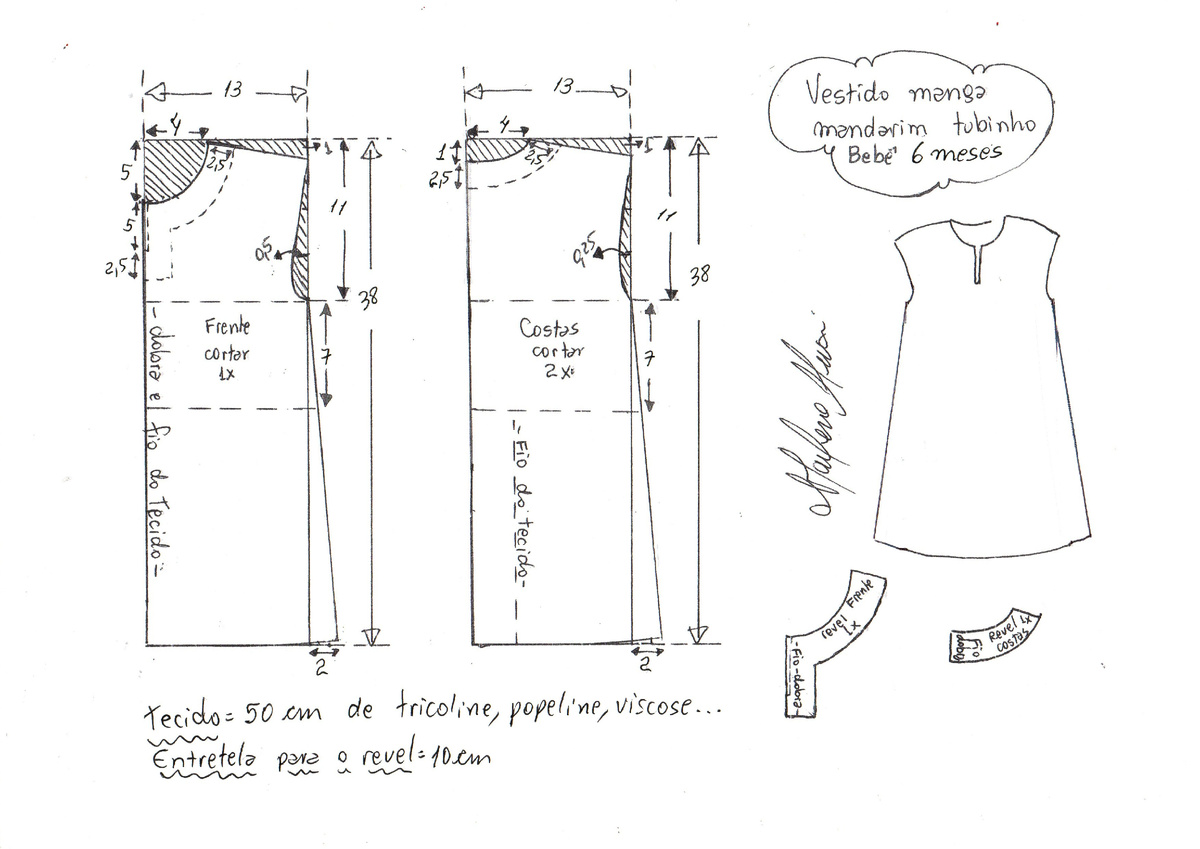 Vestido manga
mandarim tubinho
Bebê 6 meses
13
4
5
2,5
1
5
2,5
11
0,5
38
7
Frente
cortar
1x
- dobra e fio do Tecido -
2
13
4
1
2,5
2,5
1
11
0,25
38
7
Costas
cortar
2x
- Fio do tecido -
2
revel Frente
1x
- Fio - dobra -
Revel 1x
costas
Fio
dobra
Tecido = 50 cm de tricoline, popeline, viscose...
Entretela para o revel = 10 cm